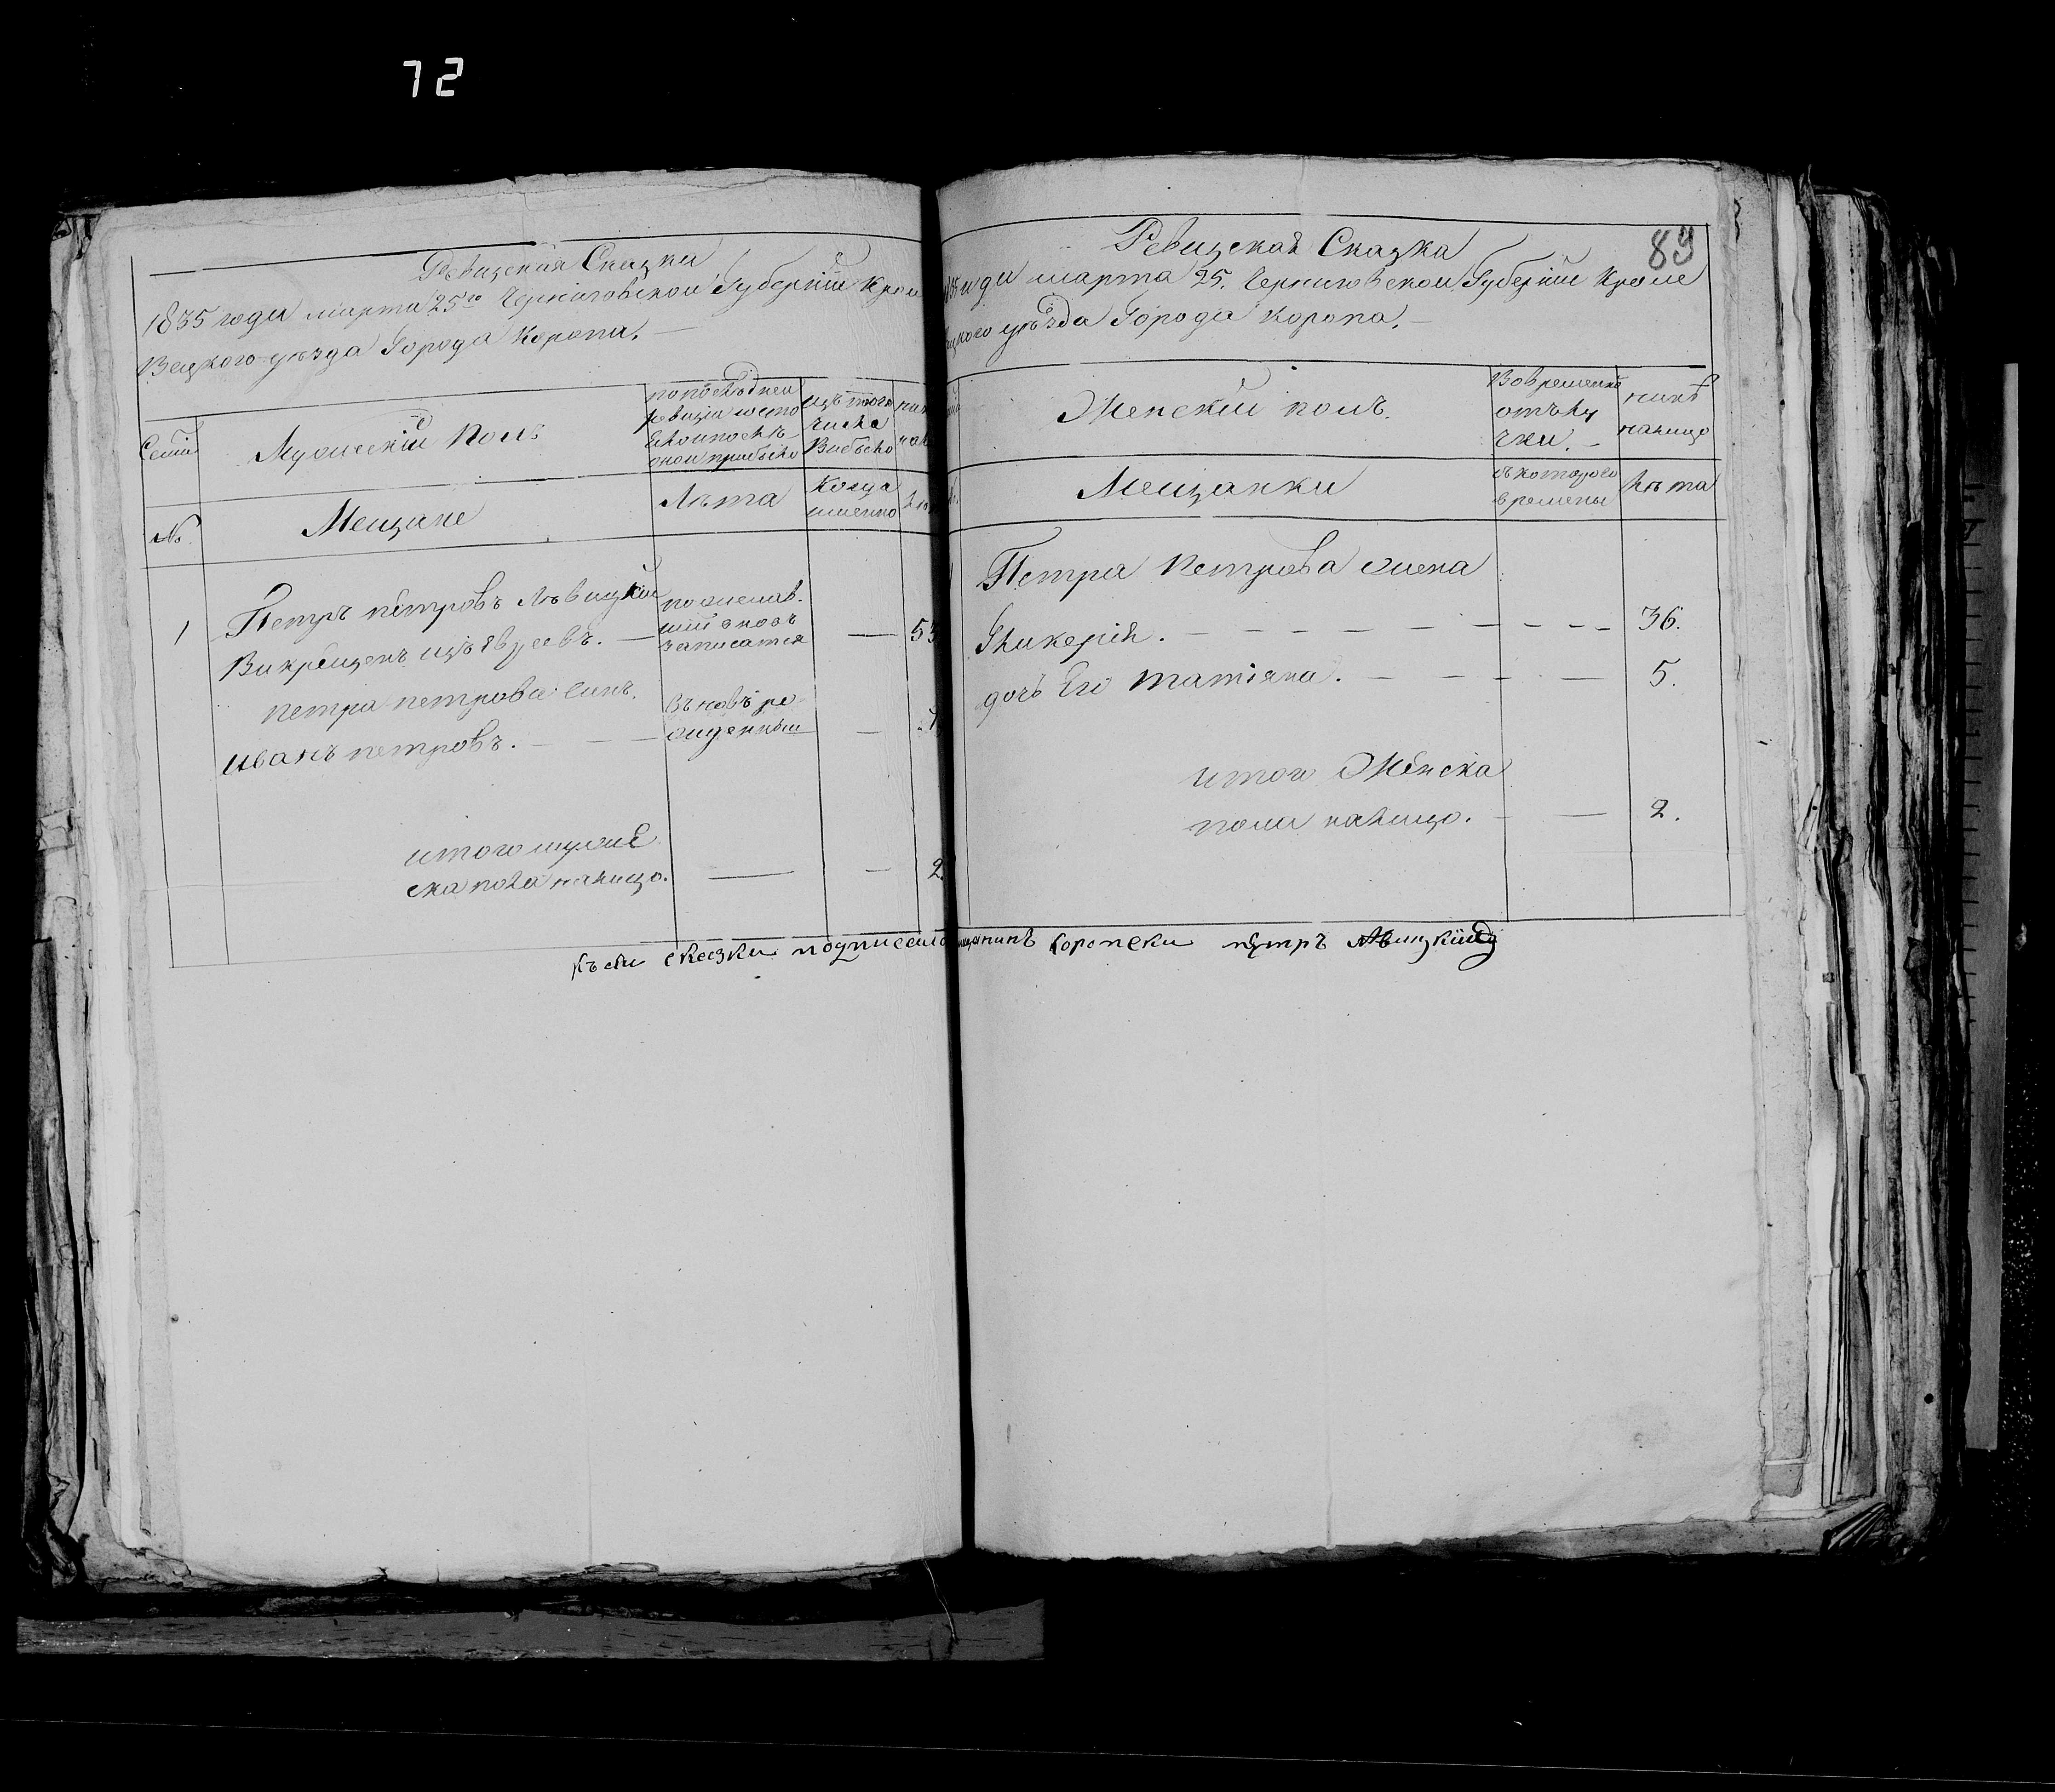 72
Ревизская Сказка
1835 года марта 25го Черниговской Губерніи Кроле
Вецкого уѣзда Города Коропа.
Семіи
Мужескій Полъ
по последнеи
ревизіи состо
яло и послѣ
оной прибыло
изъ того
числа
Выбыло
№.
Мещане
Лѣта
Когда
именно
1
Петръ петровъ Лѣвицкій
Викрещенъ изъ Евреевъ. —
пожелав-
ший вновь
записатся
— 53
петра петрова синъ.
иванъ петровъ. — — —
Въновь ро-
жденный
—
итого муже
ска пола налицо. — — 2.
89
Ревизская Сказка
марта 25. Черниговской Губерніи Кроле
уѣзда Города Коропа. —
Женскій полъ.
Вовременно
отълу
чки. —
нинѣ
налицо
Мещанки
съ которого
времены
Лѣта
Петра Петрова жена
Гликерія. — — — — — — — — — 36.
дочь Его татіяна. — — — — — 5.
итого Женска
пола налицо. — — 2.
Къ сеи сказки подписался мещанинъ Коропски петръ Лѣвицкий